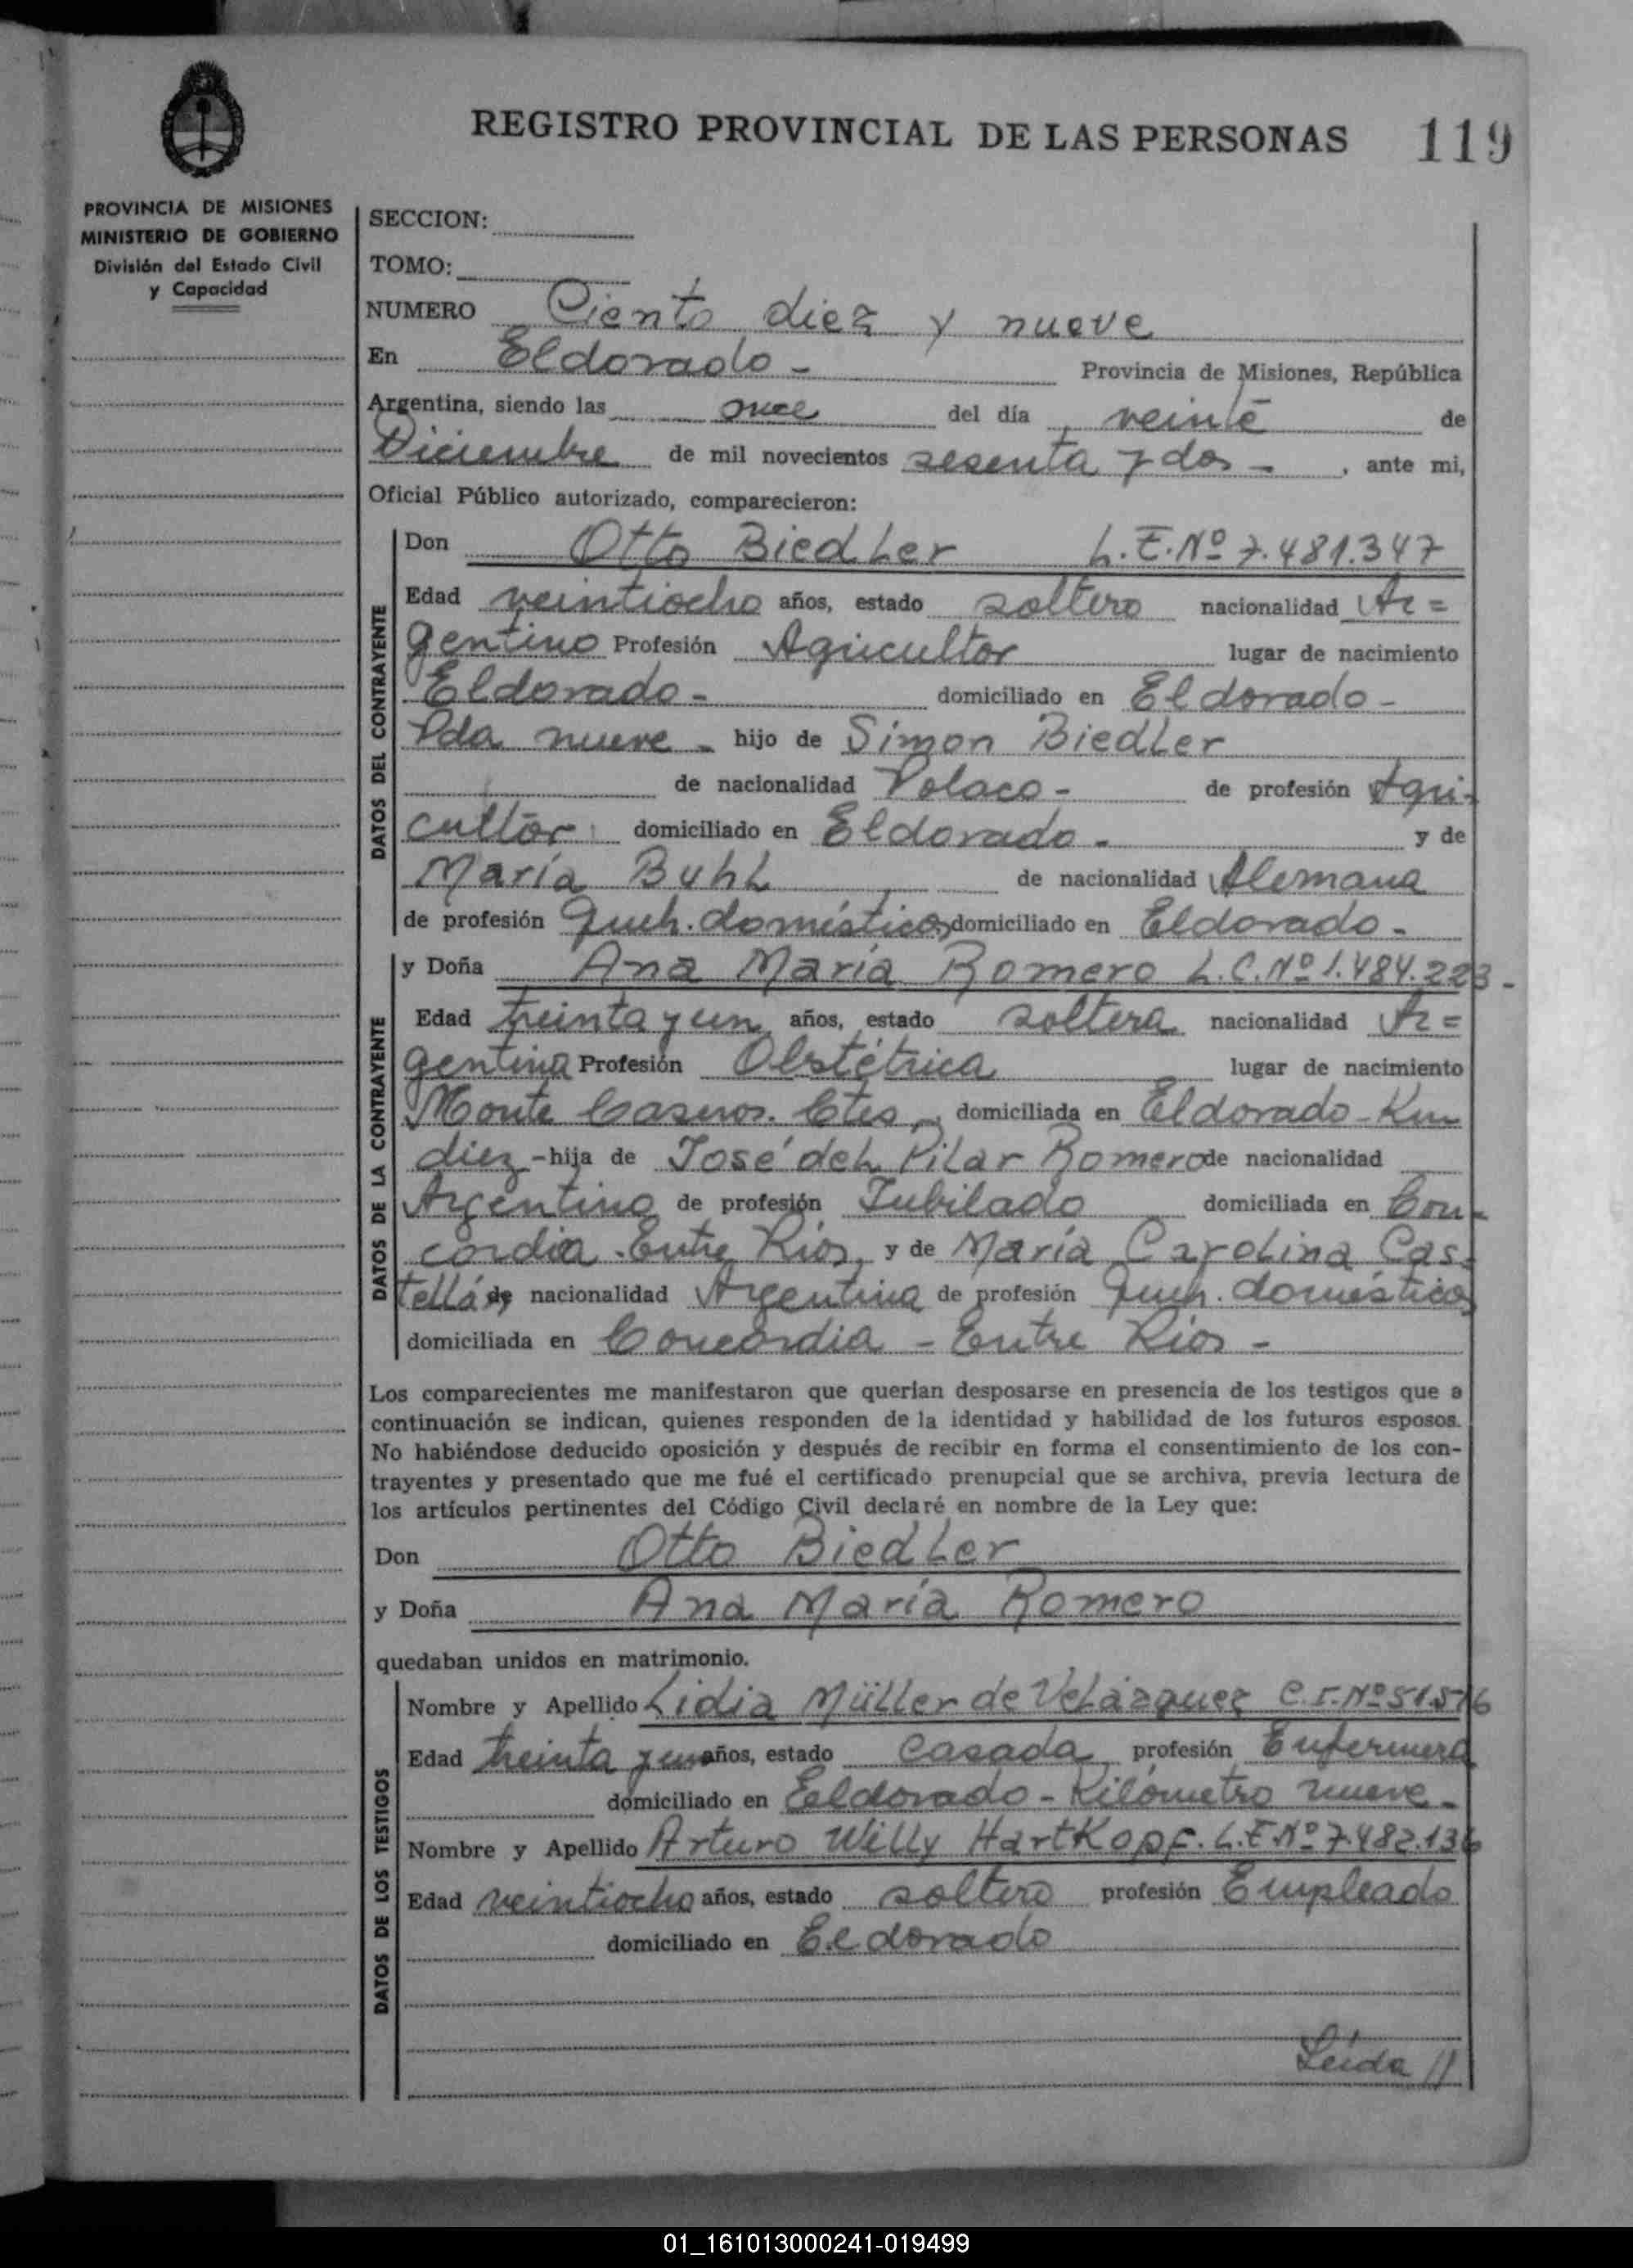 REGISTRO PROVINCIAL DE LAS PERSONAS 119
PROVINCIA DE MISIONES
MINISTERIO DE GOBIERNO
División del Estado Civil
y Capacidad
SECCION:
TOMO:
NUMERO Ciento diez y nueve
En Eldorado - Provincia de Misiones, República
Argentina, siendo las once del día veinte de
Diciembre de mil novecientos sesenta y dos - , ante mi,
Oficial Público autorizado, comparecieron:
DATOS DEL CONTRAYENTE
Don Otto Biedler L.E.Nº 7.481.347
Edad veintiocho años, estado soltero nacionalidad Ar=
gentino Profesión Agricultor lugar de nacimiento
Eldorado - domiciliado en Eldorado -
Pda nueve - hijo de Simon Biedler
de nacionalidad Polaco - de profesión Agri-
cultor domiciliado en Eldorado - y de
María Buhl de nacionalidad Alemana
de profesión Queh. domésticos domiciliado en Eldorado -
DATOS DE LA CONTRAYENTE
y Doña Ana María Romero L.C.Nº 1.484.223 -
Edad treinta y un años, estado soltera nacionalidad Ar=
gentina Profesión Obstétrica lugar de nacimiento
Monte Caseros. Ctes, domiciliada en Eldorado - Km
diez - hija de José del Pilar Romero de nacionalidad
Argentino de profesión Jubilado domiciliada en Con-
cordia. Entre Ríos, y de María Carolina Cas-
tellá, de nacionalidad Argentina de profesión Queh. domésticos
domiciliada en Concordia - Entre Ríos -
Los comparecientes me manifestaron que querían desposarse en presencia de los testigos que a
continuación se indican, quienes responden de la identidad y habilidad de los futuros esposos.
No habiéndose deducido oposición y después de recibir en forma el consentimiento de los con-
trayentes y presentado que me fué el certificado prenupcial que se archiva, previa lectura de
los artículos pertinentes del Código Civil declaré en nombre de la Ley que:
Don Otto Biedler
y Doña Ana María Romero
quedaban unidos en matrimonio.
DATOS DE LOS TESTIGOS
Nombre y Apellido Lidia Müller de Velázquez C.I.Nº 51.516
Edad treinta y un años, estado casada profesión Enfermera
domiciliado en Eldorado - Kilómetro nueve -
Nombre y Apellido Arturo Willy Hartkopf. L.E.Nº 7.482.136
Edad veintiocho años, estado soltero profesión Empleado
domiciliado en Eldorado
Leída //
01_161013000241-019499